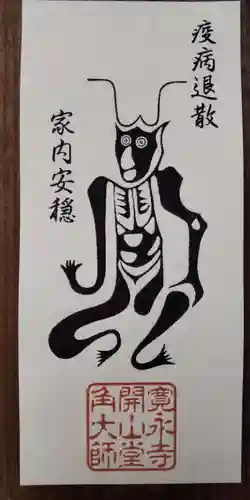 疫病退散
家内安穏
寛永寺
開山堂
角大師